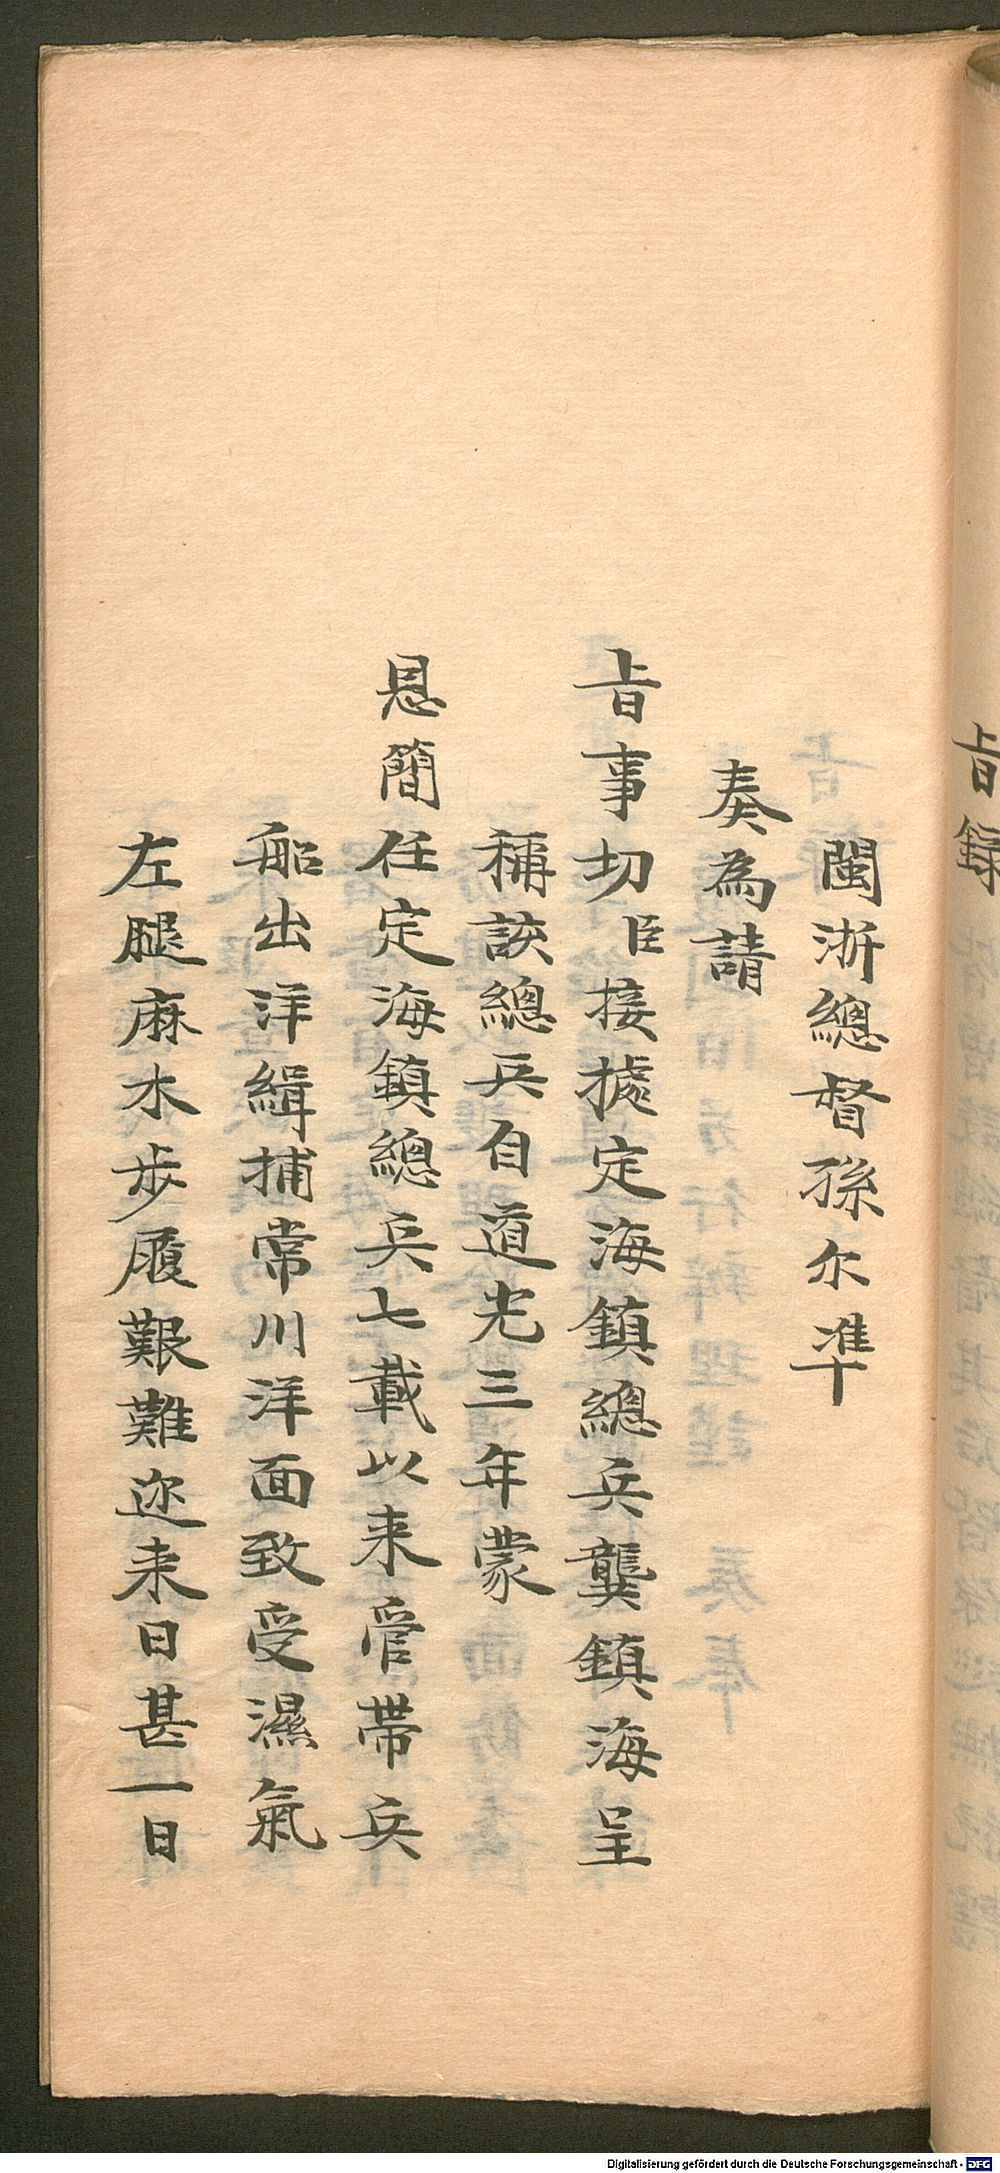 閩浙總督孫尔凖
奏為請
旨事切臣接據定海鎮總兵龔鎮海呈
稱該總兵自道光三年蒙
恩簡任定海鎮總兵七載以来管帶兵
船出洋緝捕常川洋面致受濕氣
左腿麻木步履艱難迩来日甚一日
旨録
Digitalisierung gefördert durch die Deutsche Forschungsgemeinschaft - DFG